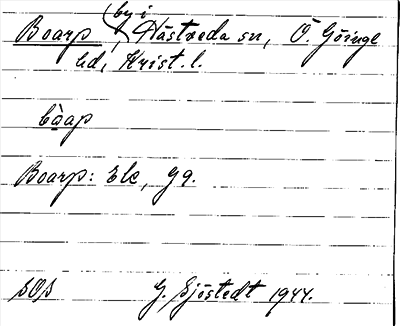 Boarp, by i Nästveda sn, Ö. Göinge
hd, Krist. l.
bòap
Boarp: Ek, gg.
SOS G. Sjöstedt 1944.